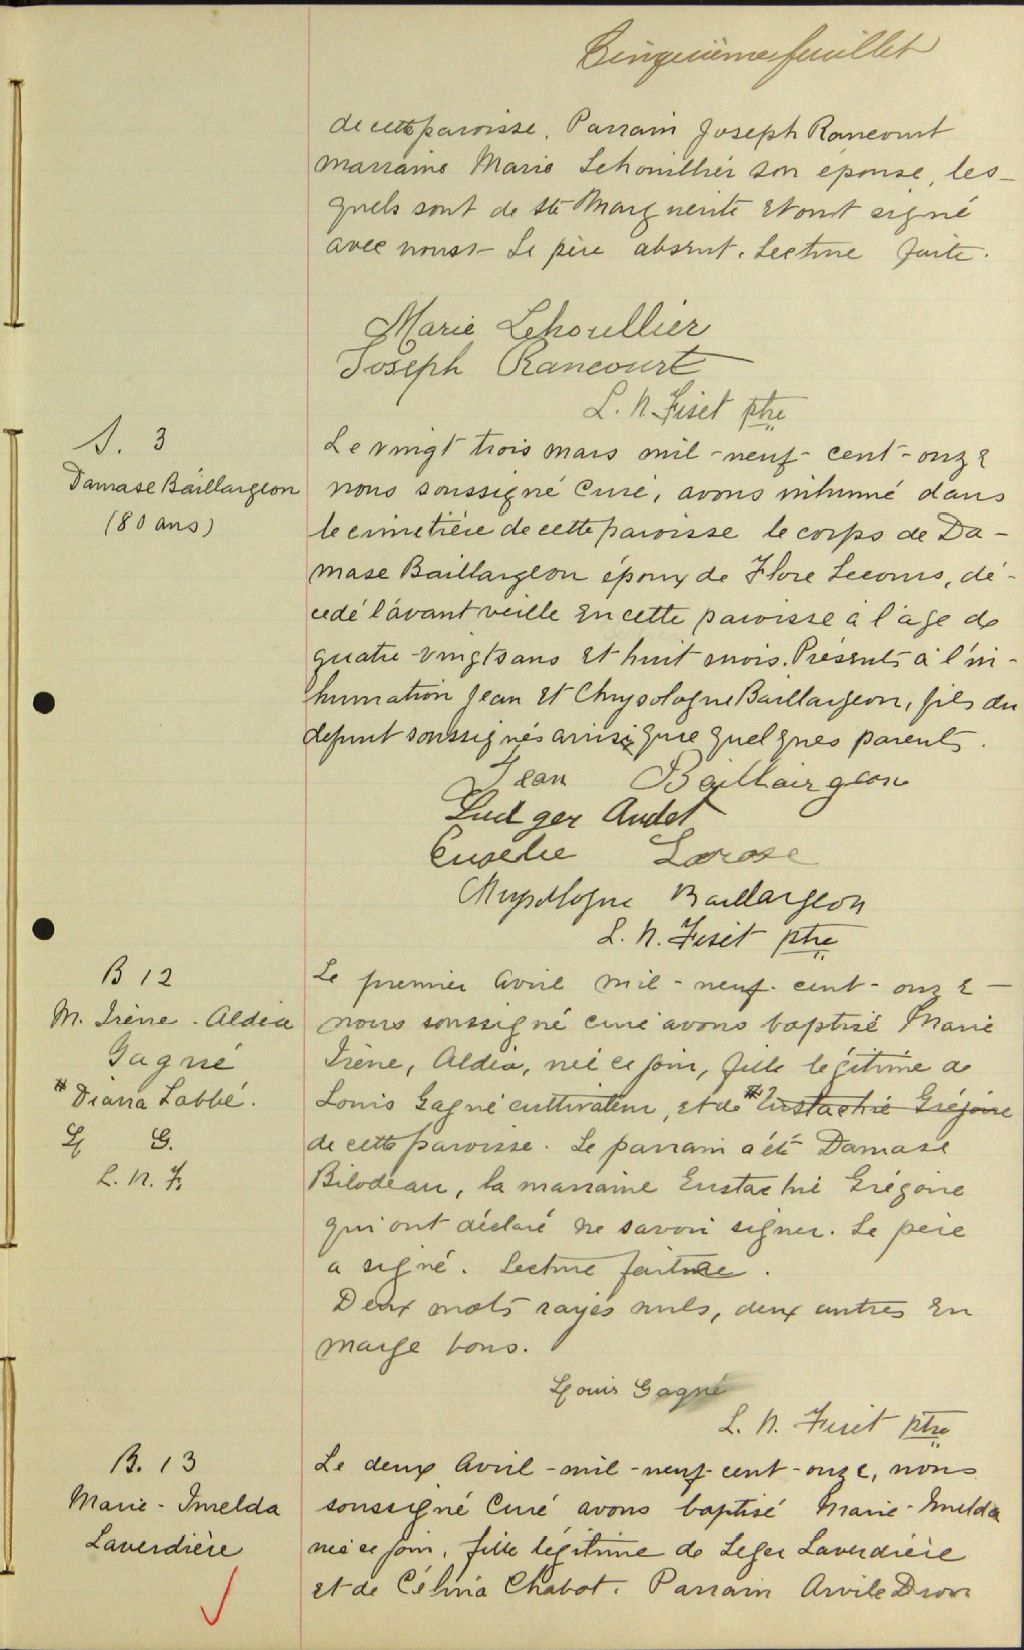 Cinquième feuillet
de cette paroisse. Parrain Joseph Rancourt
marraine Marie Lehouillier son épouse, les-
quels sont de Ste Marguerite et ont signé
avec nous - Le père absent. Lecture faite.
Marie Lehoullier
Joseph Rancourt
L. N. Fiset ptre
S. 3
Damase Baillargeon
(80 ans)
Le vingt trois mars mil-neuf-cent-onze
nous soussigné Curé, avons inhumé dans
le cimetière de cette paroisse le corps de Da-
mase Baillargeon époux de Flore Lecours, dé-
cédé l'avant veille en cette paroisse à l'âge de
quatre-vingts ans et huit mois. Présents à l'in-
humation Jean et Chrysologue Baillargeon, fils du
defunt soussignés ainsi que quelques parents.
Jean Baillairgeon
Ludger Audet
Eusèbe Larose
Chrysologue Baillargeon
L. N. Fiset ptre
B 12
M. Irène - Aldéa
Gagné
* Diana Labbé.
L G.
L. N. F.
Le premier Avril mil-neuf-cent-onze -
nous soussigné curé avons baptisé Marie
Irène, Aldéa, née ce jour, fille légitime de
Louis Gagné cultivateur, et de * Eustachie Grégoire
de cette paroisse. Le parrain a été Damase
Bilodeau, la marraine Eustachie Grégoire
qui ont déclaré ne savoir signer. Le père
a signé. Lecture faite.
Deux mots rayés nuls, deux autres en
marge bons.
Louis Gagné
L. N. Fiset ptre
B. 13
Marie-Imelda
Laverdière
Le deux Avril-mil-neuf-cent-onze, nous
soussigné Curé avons baptisé Marie-Imelda
née ce jour, fille légitime de Leger Laverdière
et de Célina Chabot. Parrain Arvile Dion